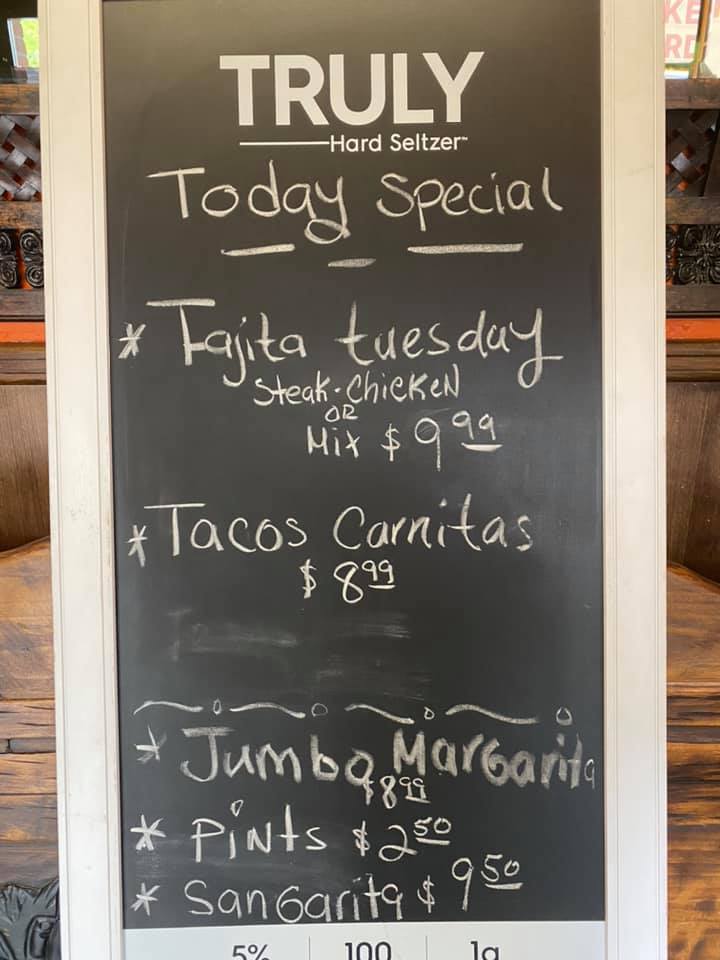 TRULY
Hard Seltzer™
Today Special
* Fajita tuesday
Steak-Chicken
OR
Mix $9.99
* Tacos Carnitas
$8.99
* Jumbo Margarita
$8.99
* Pints $2.50
* Sangarita $9.50
5% 100 1g